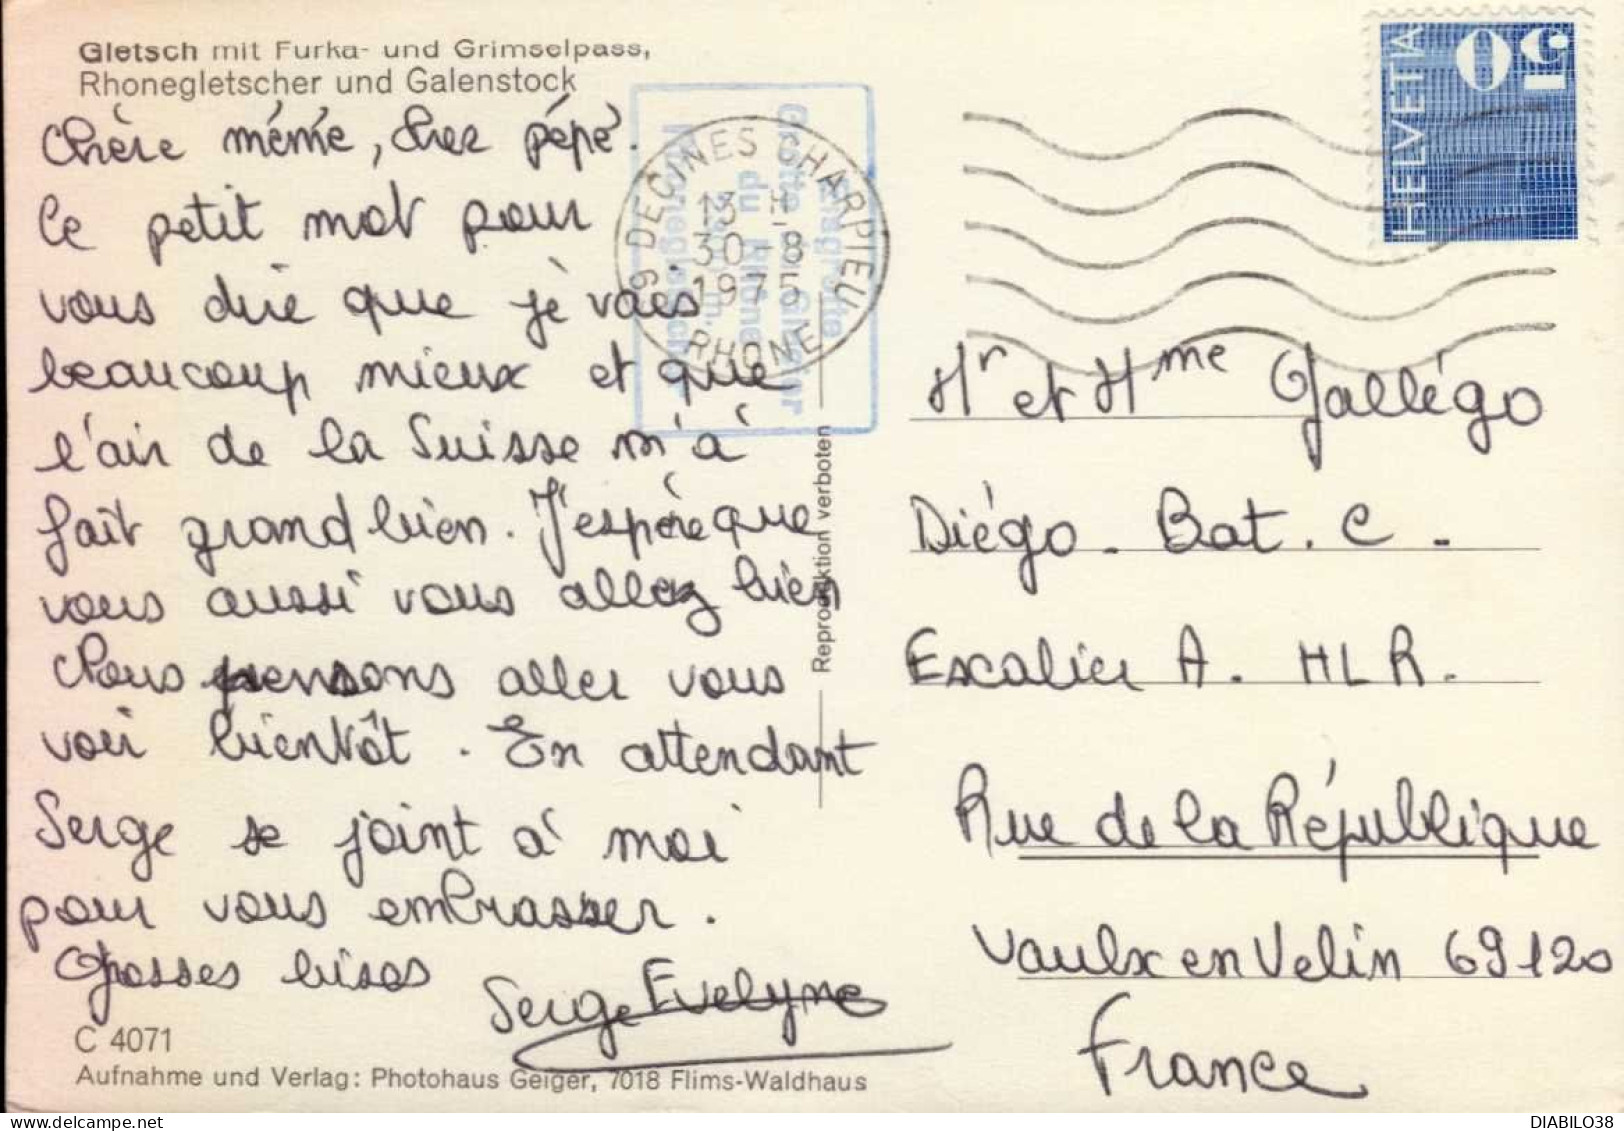 Gletsch mit Furka- und Grimselpass,
Rhonegletscher und Galenstock
Chère mémé, cher pépé.
Ce petit mot pour
vous dire que je vais
beaucoup mieux et que
l'air de la Suisse m'a
fait grand bien. J'espère que
vous aussi vous allez bien
Nous pensons aller vous
voir bientôt. En attendant
Serge se joint à moi
pour vous embrasser.
Grosses bises
Serge Evelyne
C 4071
Aufnahme und Verlag: Photohaus Geiger, 7018 Flims-Waldhaus
Reproduktion verboten
69 DECINES CHARPIEU
13 H
30-8
1975
RHONE
du Rhône
HELVETIA
50
Mr et Mme Gallégo
Diégo - Bat. C -
Escalier A. HLR.
Rue de la République
Vaulx en Velin 69120
France
DIABILO38